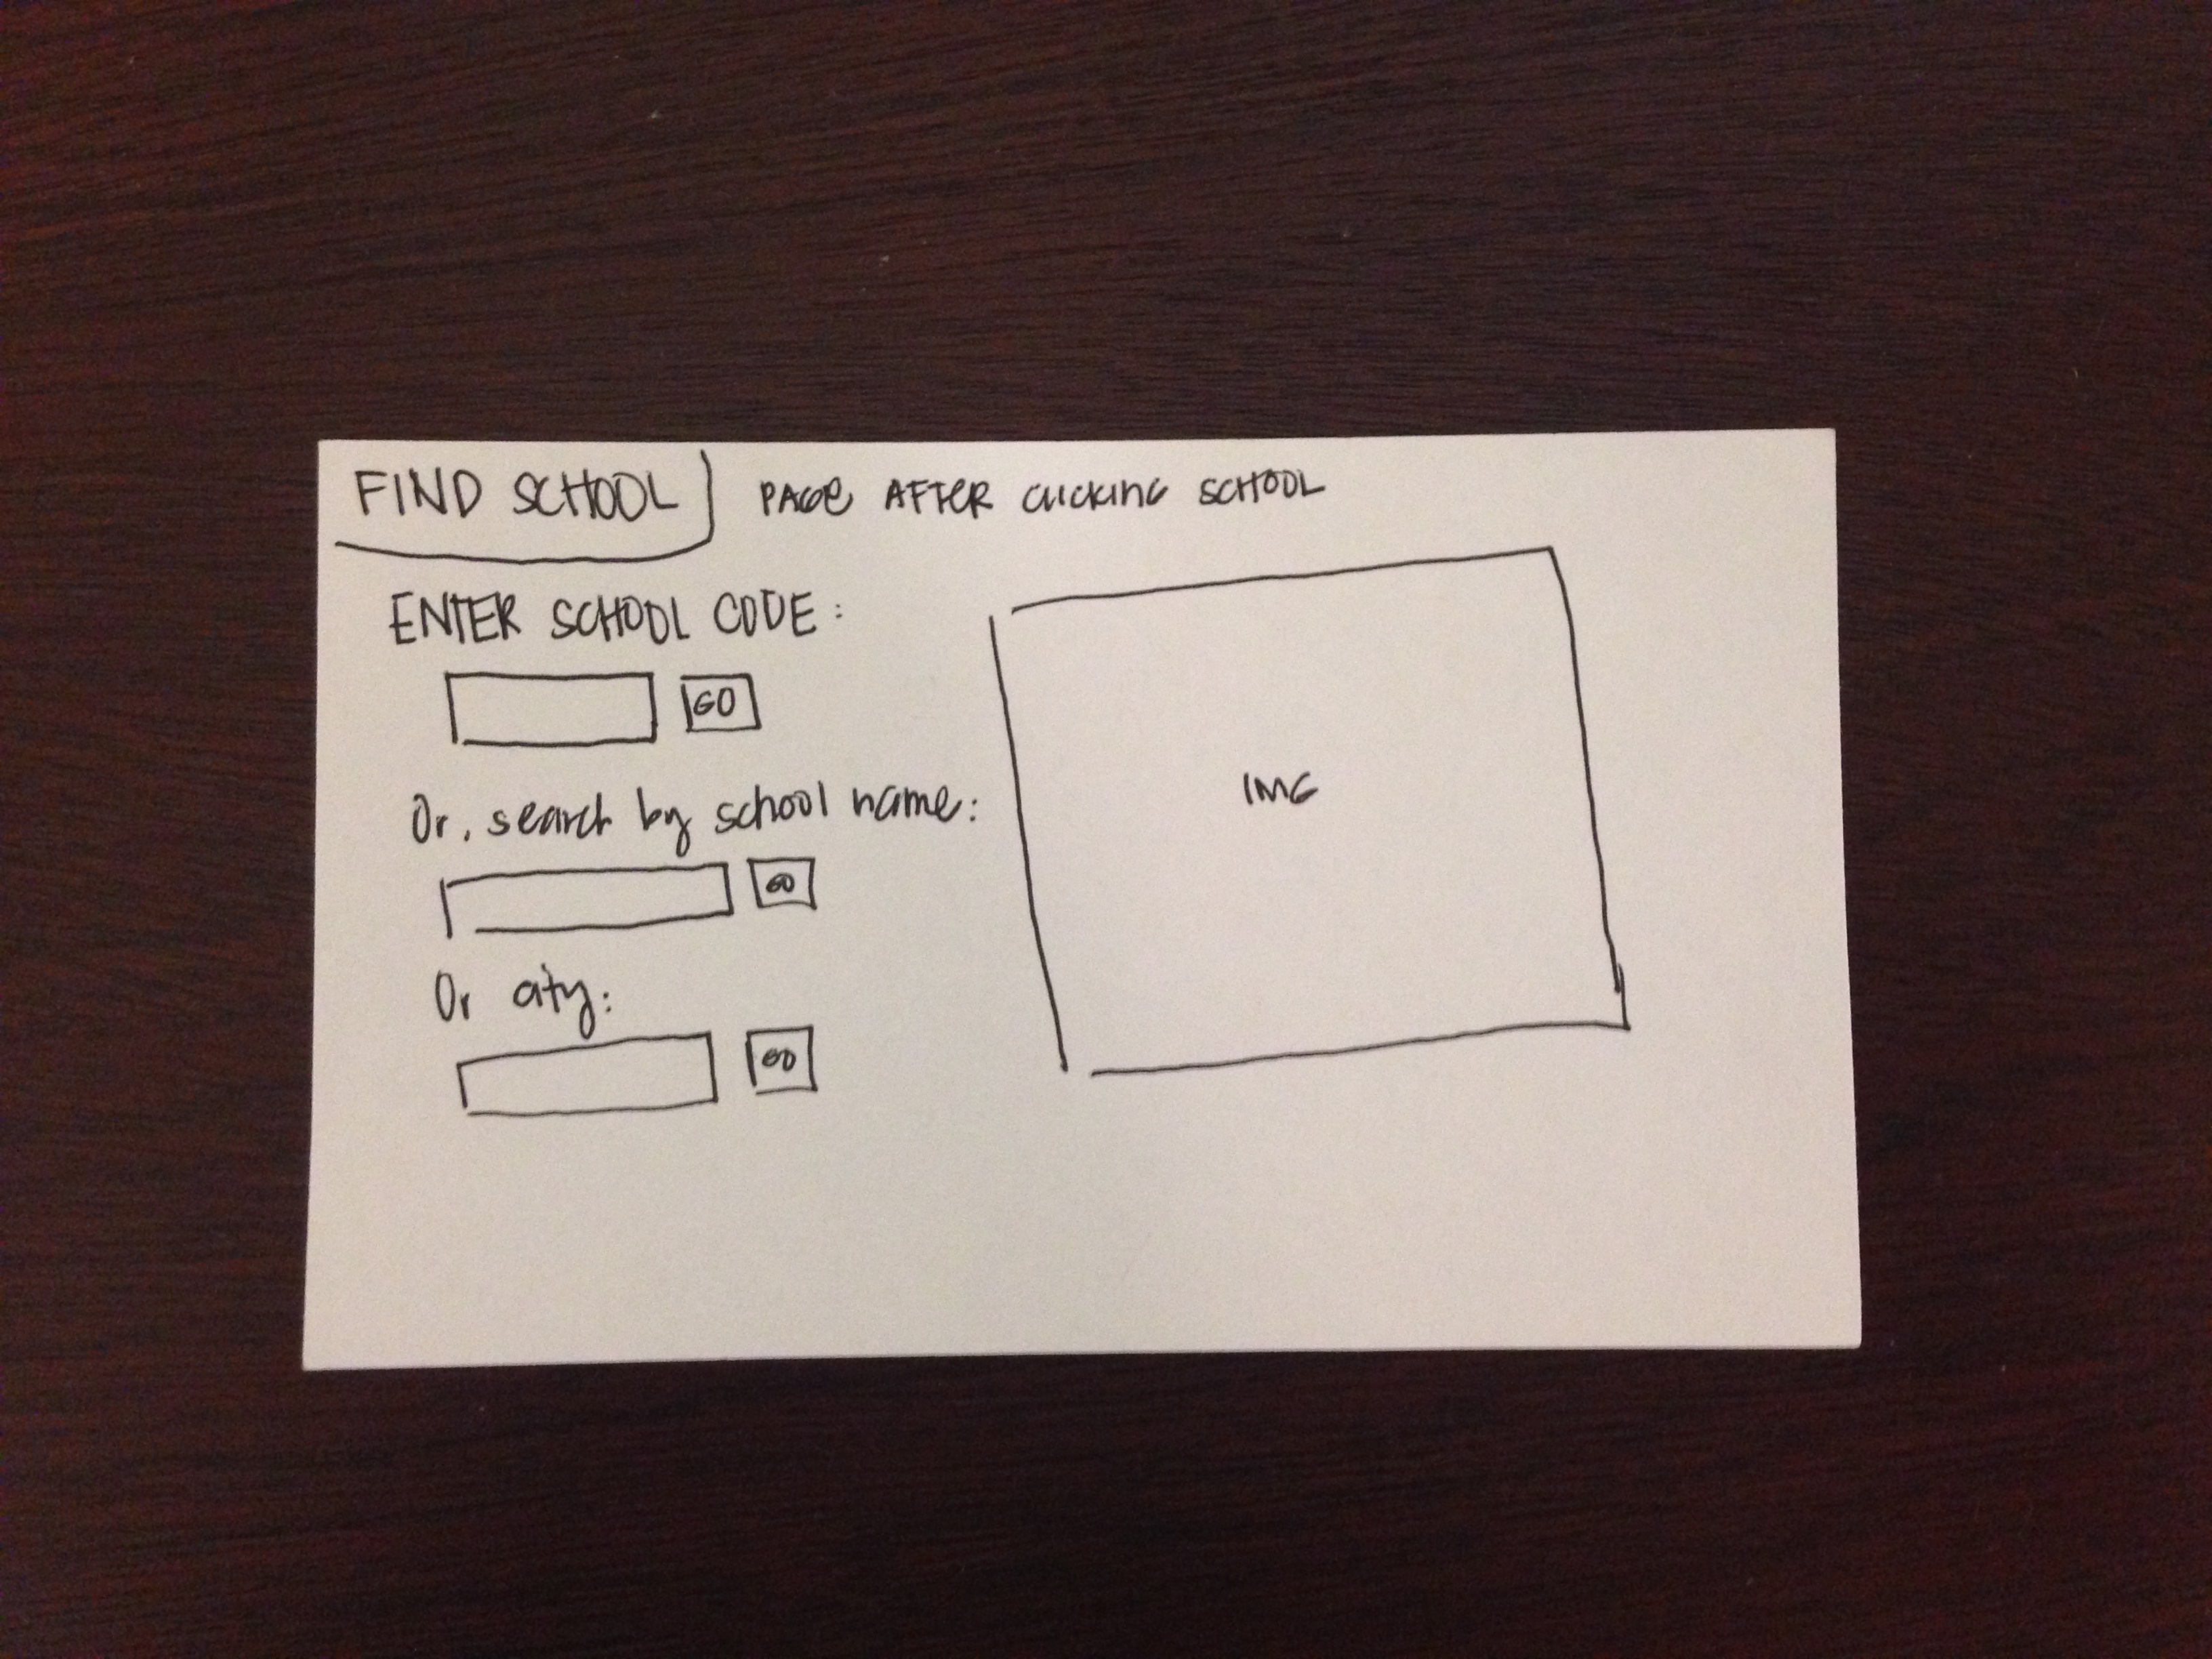 FIND SCHOOL
PAGE AFTER CLICKING SCHOOL
ENTER SCHOOL CODE:
GO
Or, search by school name:
GO
Or city:
GO
IMG